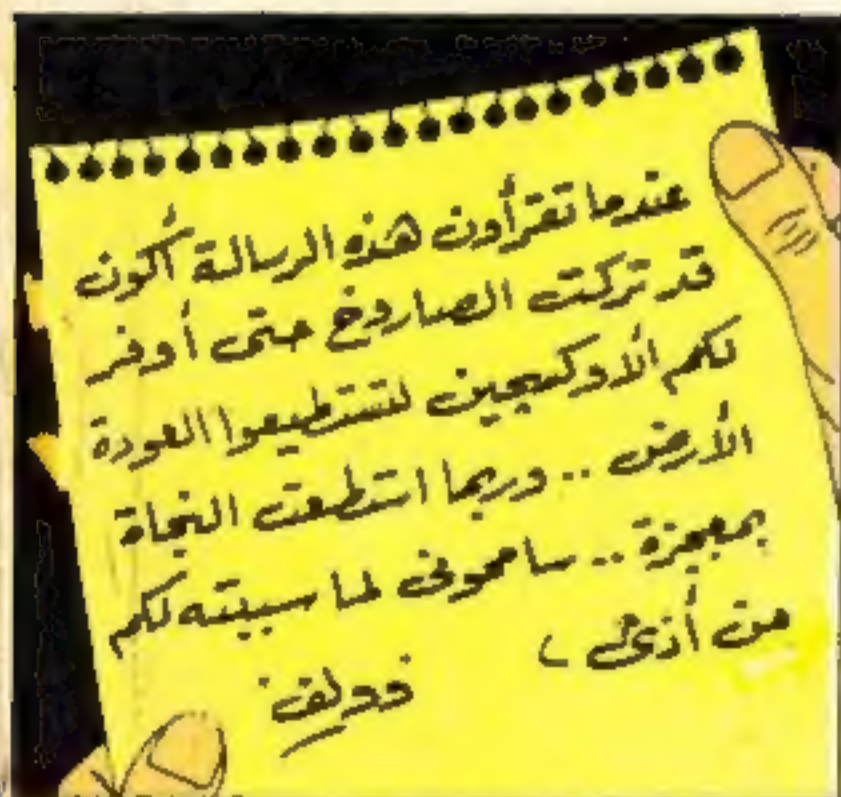 عندما تقرأون هذه الرسالة أكون
قد تركت الصاروخ حتى أوفر
لكم الأوكسجين لتستطيعوا العودة
الأرض .. وربما استطعت النجاة
بمعجزة .. سامحونى لما سببته لكم
من أذى ،
فولف